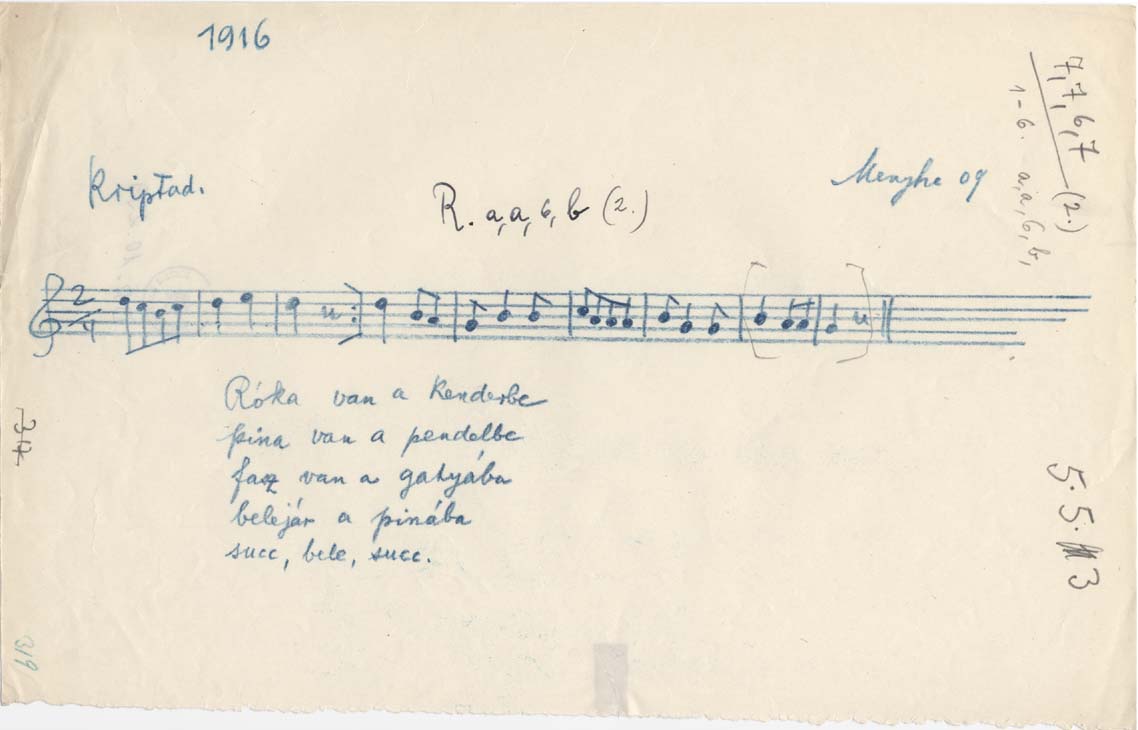 1916
Kriptad.
Menyhe 09
R. a, a, b, b (2.)
7, 7, 6, 7 (2.)
1-6. a, a, b, b,
2
4
Róka van a kenderbe
pina van a pendelbe
fasz van a gatyába
belejár a pinába
succ, bele, succ.
5. 5. 3
37
319